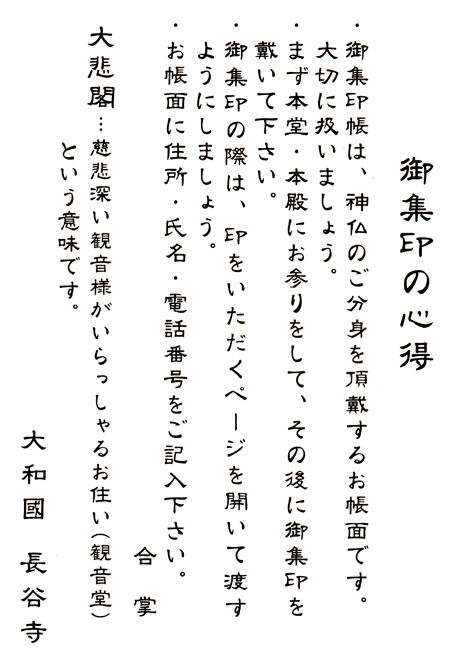 御集印の心得
・御集印帳は、神仏のご分身を頂戴するお帳面です。
大切に扱いましょう。
・まず本堂・本殿にお参りをして、その後に御集印を
戴いて下さい。
・御集印の際は、印をいただくページを開いて渡す
ようにしましょう。
・お帳面に住所・氏名・電話番号をご記入下さい。
合掌
大悲閣…慈悲深い観音様がいらっしゃるお住い(観音堂)
という意味です。
大和國 長谷寺